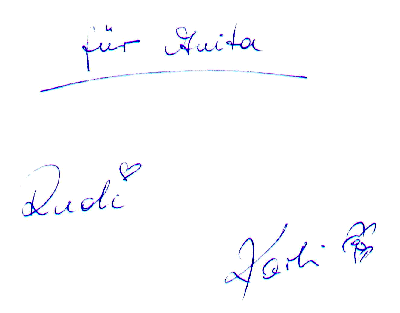 für Anita
Rudi
Karli